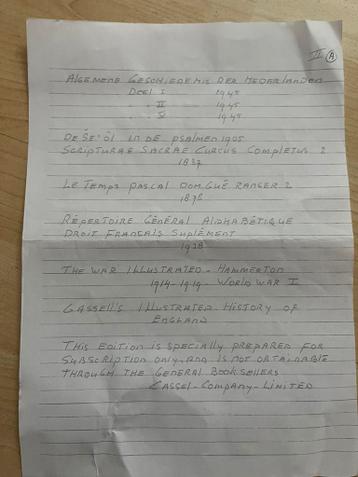 II A
ALGEMENE GESCHIEDENIS DER NEDERLANDEN
DEEL I 1945
" " II 1945
" " V 1945
DE ŠE'ÔL IN DE PSALMEN 1905
SCRIPTURAE SACRAE CURCUS COMPLETUS 2
1837
LE TEMPS PASCAL DOM. GUÉ RANGER 2
1876
RÉPERTOIRE GÉNÉRAL ALPHABÉTIQUE
DROIT FRANCAIS SUPLÉMENT
1928
THE WAR ILLUSTRATED - HAMMERTON
1914-1919 - WORLD WAR I
CASSELL'S ILLUSTRATED HISTORY OF
ENGLAND
THIS EDITION IS SPECIALLY PREPARED FOR
SUBSCRIPTION ONLY, AND IS NOT OBTAINABLE
THROUGH THE GENERAL BOOKSELLERS
CASSEL-COMPANY-LIMITED